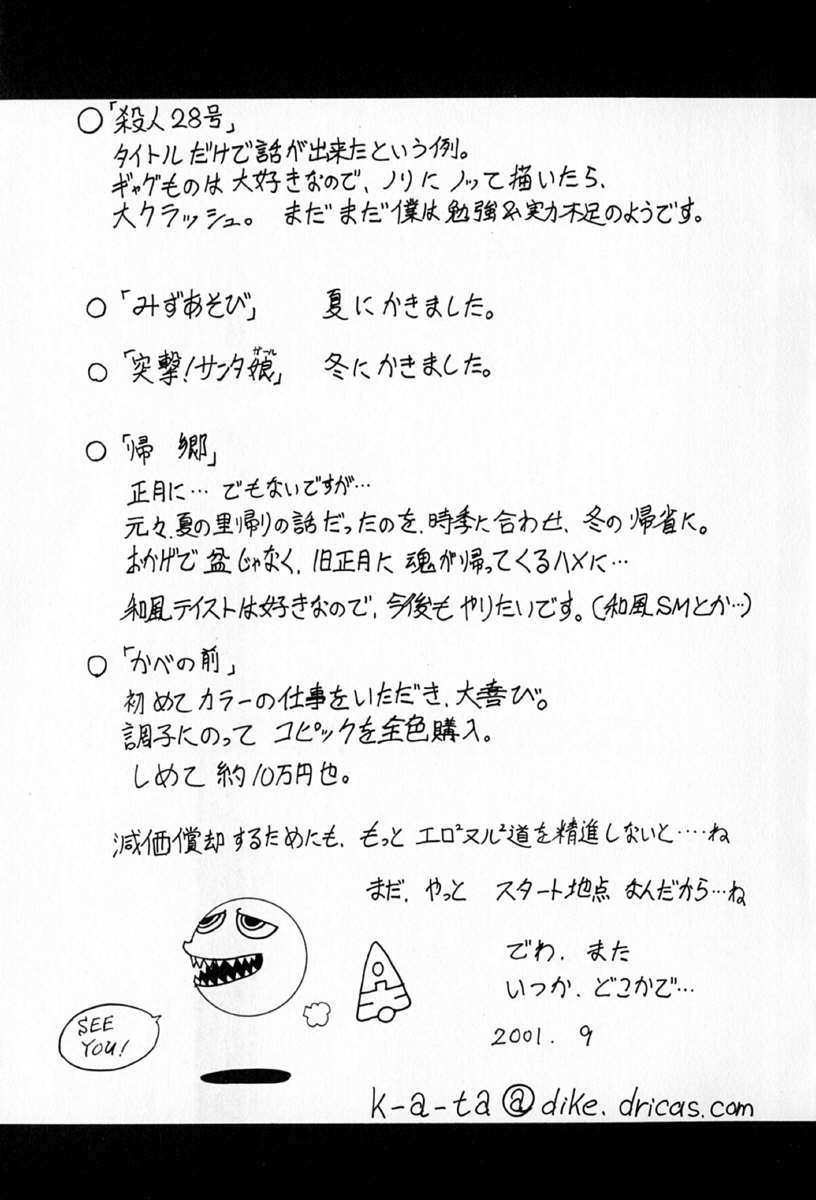 ○「殺人28号」
タイトルだけで話が出来たという例。
ギャグものは大好きなので、ノリにノッて描いたら、
大クラッシュ。 まだまだ僕は勉強&実力不足のようです。
○「みずあそび」 夏にかきました。
○「突撃!サンタ娘」 冬にかきました。
○「帰 郷」
正月に…でもないですが…
元々、夏の里帰りの話だったのを、時季に合わせ、冬の帰省に。
おかげで盆じゃなく、旧正月に魂が帰ってくるハメに…
和風テイストは好きなので、今後もやりたいです。(和風SMとか…)
○「かべの前」
初めてカラーの仕事をいただき、大喜び。
調子にのって コピックを全色購入。
しめて約10万円也。
減価償却するためにも、もっと エロ²ヌル²道を精進しないと‥‥ね
まだ、やっと スタート地点 なんだから…ね
でわ、また
いつか、どこかで…
SEE
YOU!
2001. 9
k-a-ta@dike.dricas.com